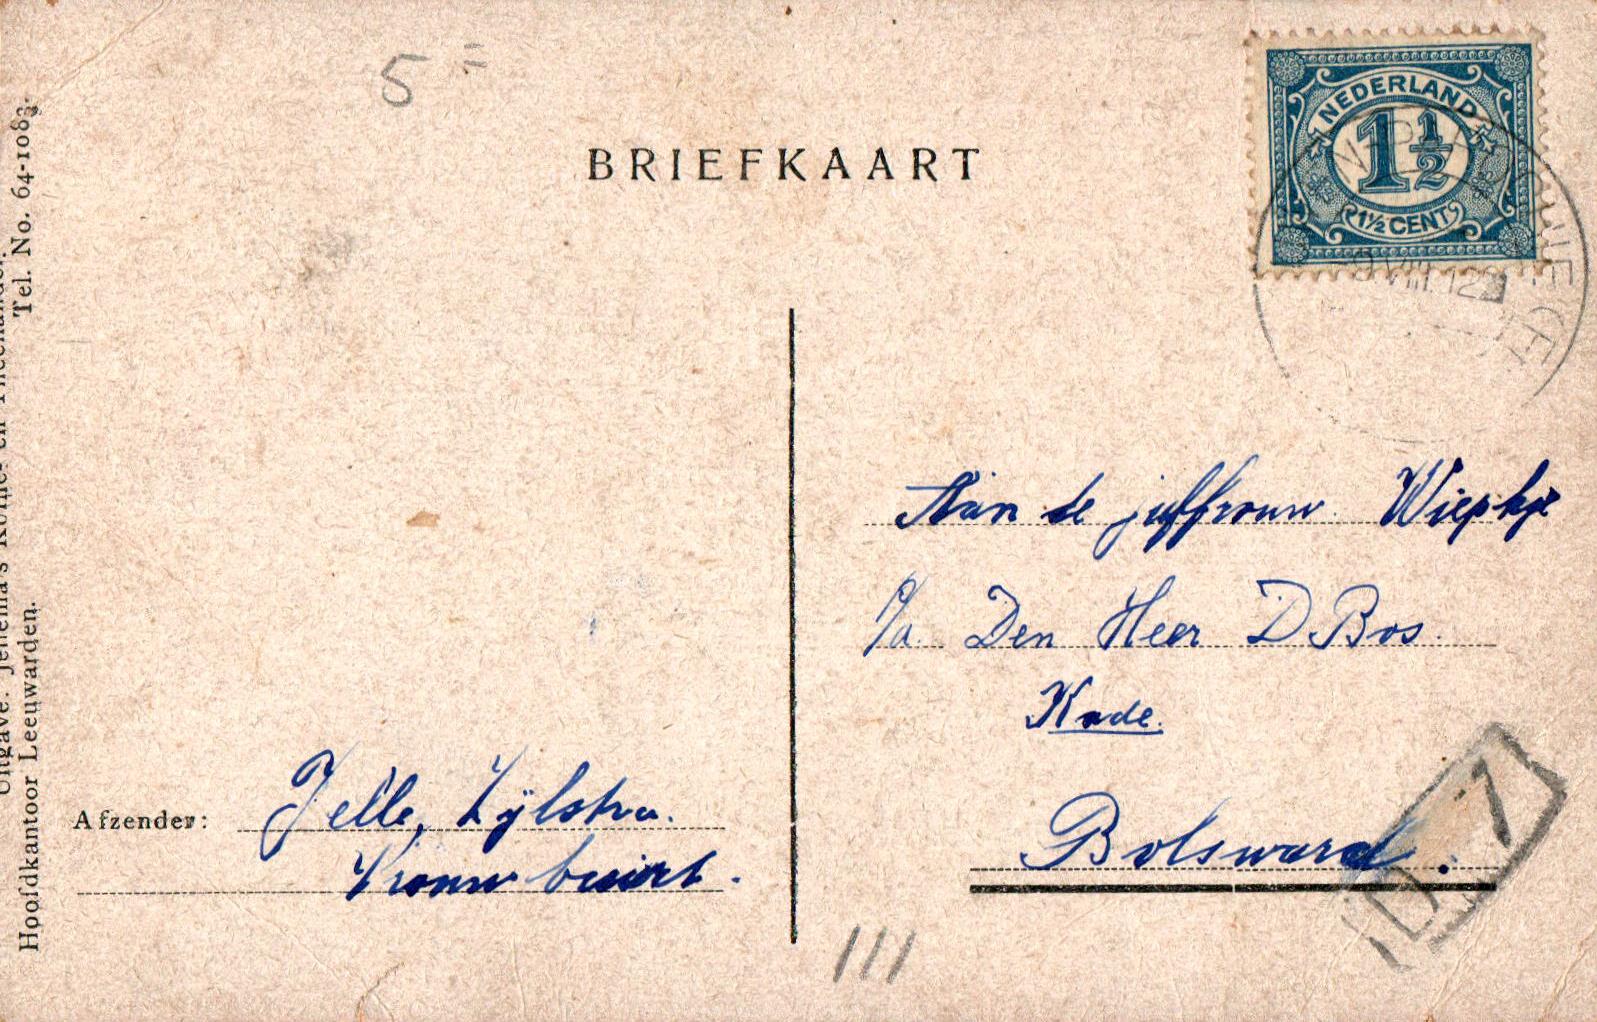 5 =
BRIEFKAART
NEDERLAND
1½
1½ CENT
VIII.12
Uitgave: Jellema's Koffie- en Theehandel.
Hoofdkantoor Leeuwarden. Tel. No. 64-1083.
Aan de juffrouw Wiepkje
p/a. Den Heer D Bos.
Kade.
Bolsward.
Afzender: Jelle, Zijlstra.
Vrouwbuurt.